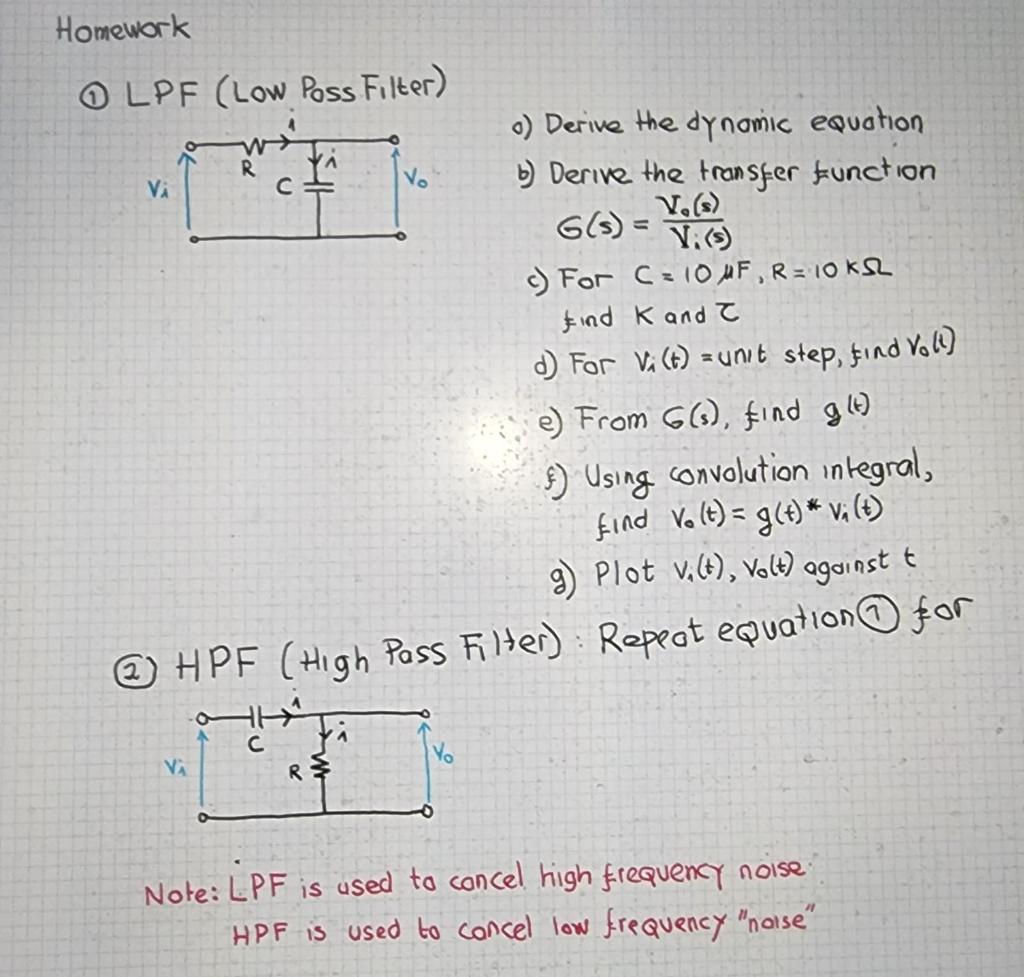 Homework
① LPF (Low Pass Filter)
i
R
i
C
Vi
Vo
a) Derive the dynamic equation
b) Derive the transfer function
G(s) = Vo(s)
Vi(s)
c) For C = 10 µF, R = 10 kΩ
find K and τ
d) For Vi(t) = unit step, find Vo(t)
e) From G(s), find g(t)
f) Using convolution integral,
find Vo(t) = g(t) * Vi(t)
g) Plot Vi(t), Vo(t) against t
② HPF (High Pass Filter) : Repeat equation ① for
i
C
i
Vi
R
Vo
Note: LPF is used to cancel high frequency noise
HPF is used to cancel low frequency "noise"